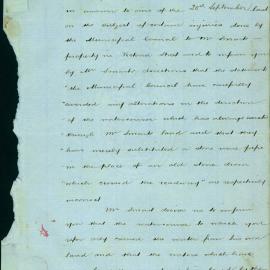 in answer to one of the 28th September last
on the subject of certain injuries done by
the Municipal Council to Mr Smart's
property in Street and to inform you
by Mr Smart's directions that the statement
"the Municipal Council have carefully
avoided any alterations in the direction
of the watercourse which has always existed
through Mr Smart's land and that they
have merely substituted a stone ware pipe
in the place of an old stone drain
which crossed the roadway" is respectfully
incorrect
Mr Smart desires us to inform
you that the watercourse to which you
refer only carried the water from his own
land and that the waters which have